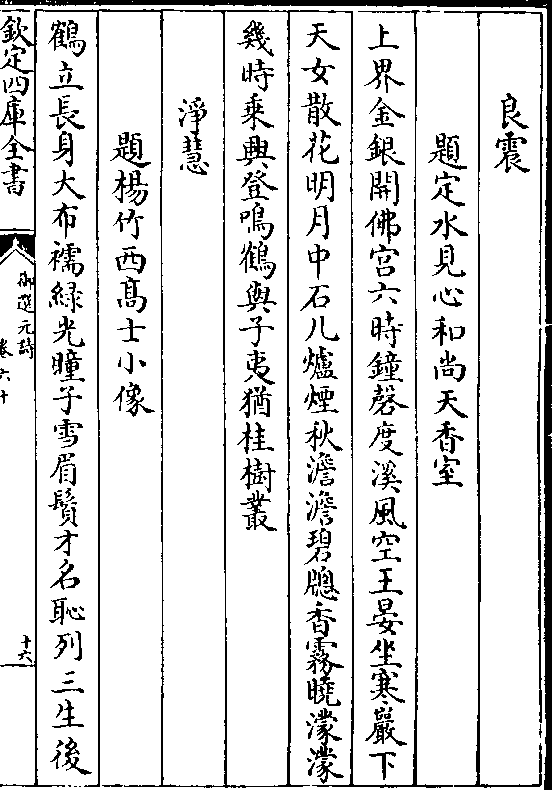 良震
題定水見心和尚天香室
上界金銀開佛宫六時鐘磬度溪風空王晏坐寒巖下
天女散花明月中石几爐煙秋澹澹碧牕香霧曉濛濛
幾時乗興登鳴鶴與子夷猶桂樹叢
淨慧
題楊竹西髙士小像
鶴立長身大布襦緑光瞳子雪眉鬚才名恥列三生後
欽定四庫全書
御選元詩
卷六十
十六